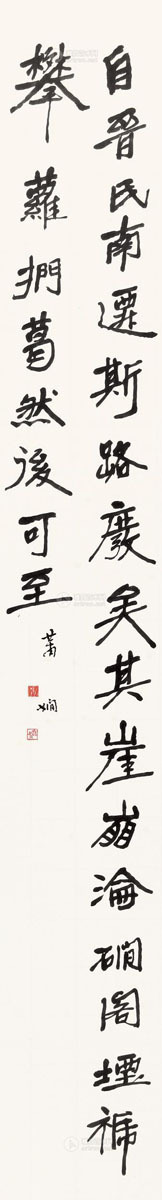 自晉氏南遷斯路廢矣其崖崩淪磵閣堙褫
攀蘿捫葛然後可至
蕭嫻